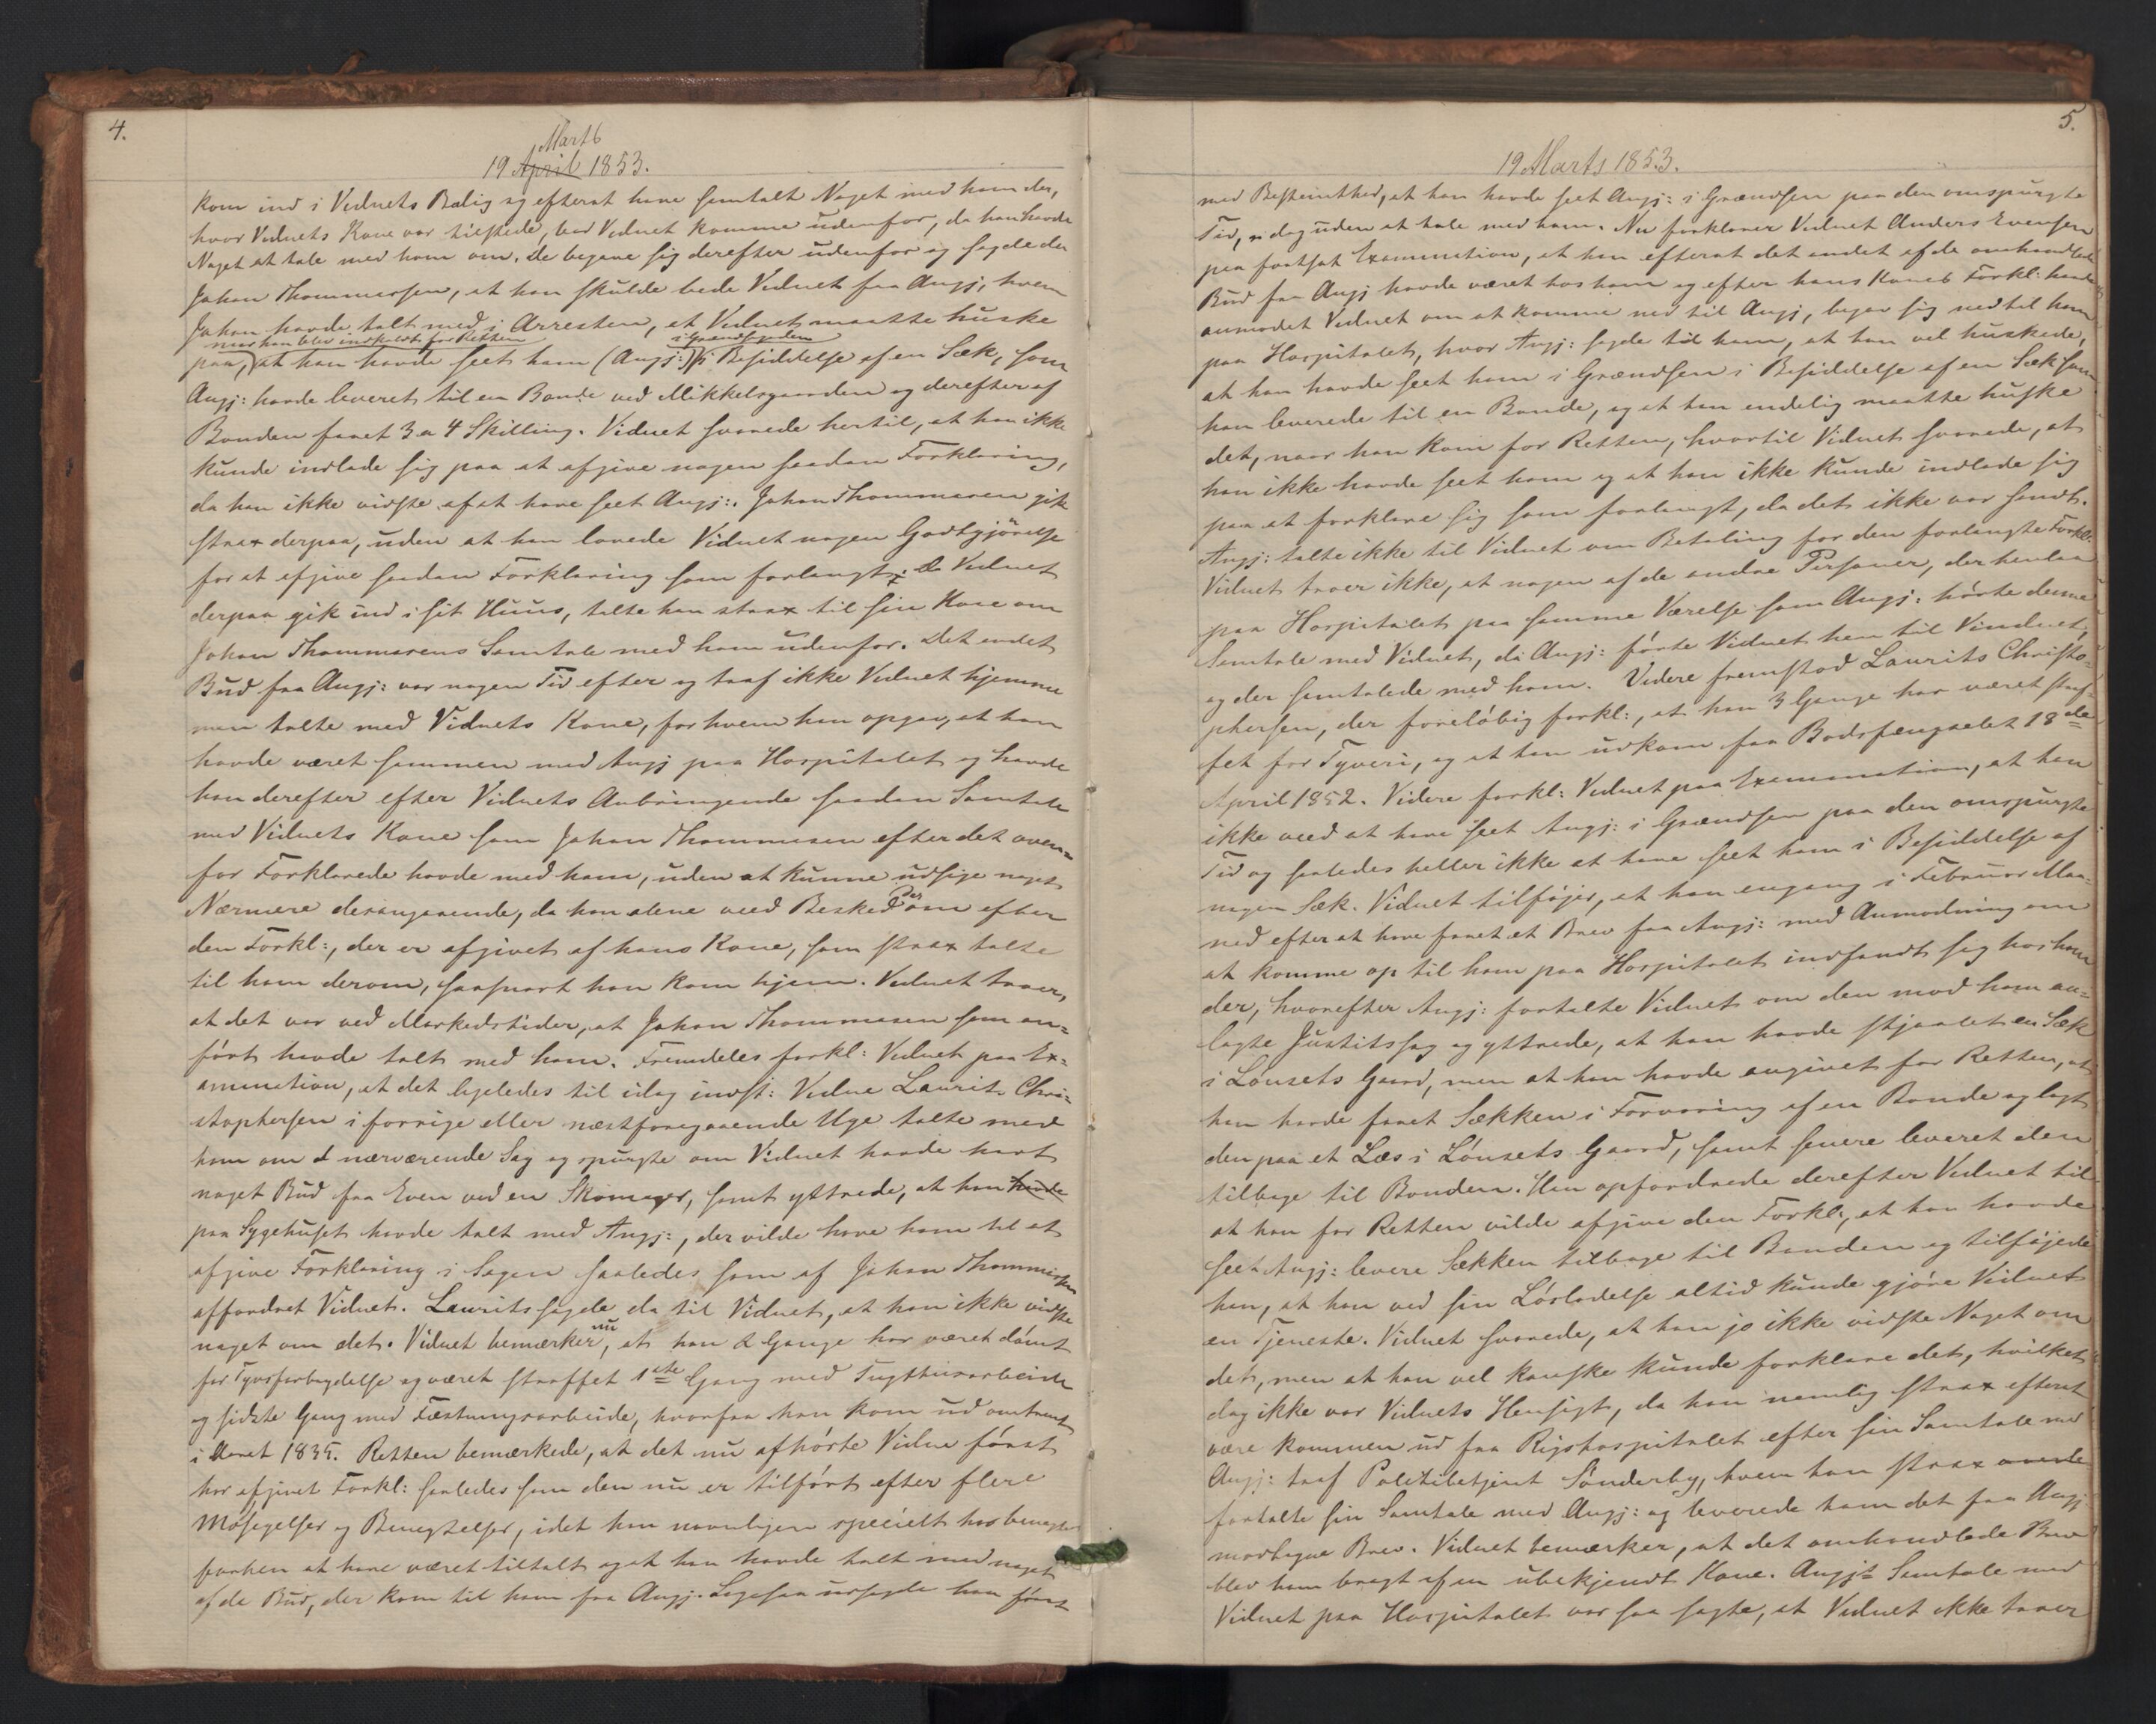 4.
Marts
19 April 1853.
kom ind i Vidnets Bolig og efterat have samtalt Noget med ham der,
hvor Vidnets Kone var tilstede, bad Vidnet komme udenfor, da han havde
Noget at tale med ham om. De begave sig derefter udenfor og sagde da
Johan Thommesen, at han skulde bede Vidnet fra Angj, hvem
Johan havde talt med i Arresten, at Vidnet maatte huske
naar han blev indkaldt for Retten i Grændsegaden
paa, at han havde seet ham (Angj:) i Besiddelse af en Sæk, som
Angj: havde leveret til en Bonde ved Mikkelsgaarden og derefter af
Bonden faaet 3 a 4 Skilling. Vidnet svarede hertil, at han ikke
kunde indlade sig paa at afgive nogen saadan Forklaring,
da han ikke vidste af at have seet Angj:. Johan Thommesen gik
strax derpaa, uden at han lovede Vidnet nogen Godtgjörelse
for at afgive saadan Forklaring som forlangt. Da Vidnet
derpaa gik ind i sit Huus, talte han strax til sin Kone om
Johan Thommesens Samtale med ham udenfor. Det andet
Bud fra Angj: var nogen Tid efter og traf ikke Vidnet hjemme
men talte med Vidnets Kone, for hvem han opgav, at han
havde været sammen med Angj paa Hospitalet og havde
han derefter efter Vidnets Anbringende saadan Samtale
med Vidnets Kone som Johan Thommesen efter det oven-
for Forklarede havde med ham, uden at kunne udsige noget
Nærmere desangaaende, da han alene veed Besked derom efter
den Forkl:, der er afgivet af hans Kone, som strax talte
til ham derom, saasnart han kom hjem. Vidnet troer,
at det var ved Markedstider, at Johan Thommesen som an-
ført havde talt med ham. Fremdeles forkl: Vidnet paa Ex-
amination, at det ligeledes til idag indst: Vidne Laurits Chri-
stophersen i forrige eller næstforegaaende Uge talte med
ham om nærværende Sag og spurgte om Vidnet havde havt
noget Bud fra Even ved en Skomager, samt yttrede, at han havde
paa Sygehuset havde talt med Angj:, der vilde have ham til at
afgive Forklaring i Sagen saaledes som af Johan Thommesen
affordret Vidnet. Laurits sagde da til Vidnet, at han ikke vidste
noget om det. Vidnet bemærker nu, at han 2 Gange har været dömt
for Tyvsforbrydelse og været straffet 1ste Gang med Tugthusarbeide
og sidste Gang med Fæstningsarbeide, hvorfra han kom ud omtrent
i Aaret 1835. Retten bemærkede, at det nu afhörte Vidne förast
har afgivet Forkl: saaledes som den nu er tilført efter flere
Modsigelser og Benegtelser, idet han navnligen specielt har benegtet
forhen at have været tiltalt og at han havde talt med noget
af de Bud, der kom til ham fra Angj. Ligesaa udsagde han först
5.
19 Marts 1853.
med Bestemthed, at han havde seet Angj: i Grændsen paa den omspurgte
Tid, dog uden at tale med ham. Nu forklarer Vidnet Anders Evensen
paa fortsat Examination, at han efterat det andet af de omhandlede
Bud fra Angj havde været hos ham og efter hans Kones Forkl: havde
anmodet Vidnet om at komme ned til Angj, begav sig ned til ham
paa Hospitalet, hvor Angj: sagde til ham, at han vel huskede,
at han havde seet ham i Grændsen i Besiddelse af en Sæk som
han leverede til en Bonde, og at han endelig maatte huske
det, naar han kom for Retten, hvortil Vidnet svarede, at
han ikke havde seet ham og at han ikke kunde indlade sig
paa at forklare sig som forlangt, da det ikke var sandt.
Angj: talte ikke til Vidnet om Betaling for den forlangte Forkl:
Vidnet troer ikke, at nogen af de andre Personer, der henlaae
paa Hospitalet paa samme Værelse som Angj: hörte denne
Samtale med Vidnet, da Angj: förte Vidnet hen til Vinduet,
og der samtalede med ham. Videre fremstod Laurits Christo-
phersen, der foreløbig forkl:, at han 3 Gange har været straf-
fet for Tyveri, og at han udkom fra Bodsfængselet 18de
April 1852. Videre forkl: Vidnet paa Examination, at han
ikke veed at have seet Angj: i Grændsen paa den omspurgte
Tid og saaledes heller ikke at have seet ham i Besiddelse af
nogen Sæk. Vidnet tilföjer, at han engang i Februar Maa-
ned efter at have faaet et Brev fra Angj: med Anmodning om
at komme op til ham paa Hospitalet indfandt sig hos ham
der, hvorefter Angj: fortalte Vidnet om den mod ham an-
lagte Justitssag og yttrede, at han havde stjaalet en Sæk
i Lönsets Gaard, men at han havde angivet for Retten, at
han havde faaet Sækken i Forvaring af en Bonde og lagt
den paa et Læs i Lönsets Gaard, samt senere leveret den
tilbage til Bonden. Han opfordrede derefter Vidnet til
at han for Retten vilde afgive den Forkl:, at han havde
seet Angj: levere Sækken tilbage til Bonden og tilföjede
han, at han ved sin Lösladelse altid kunde gjöre Vidnet
en Tjeneste. Vidnet svarede, at han jo ikke vidste Noget om
det, men at han vel kanske kunde forklare det, hvilket
dog ikke var Vidnets Hensigt, da han nemlig strax efterat
være kommen ud fra Rigshospitalet efter sin Samtale med
Angj: traf Politibetjent Sönderby, hvem han strax
fortalte sin Samtale med Angj: og leverede ham det fra Angj
modtagne Brev. Vidnet bemærker, at det omhandlede Brev
blev ham bragt af en ubekjendt Kone. Angjs Samtale med
Vidnet paa Hospitalet var saa sagte, at Vidnet ikke troer